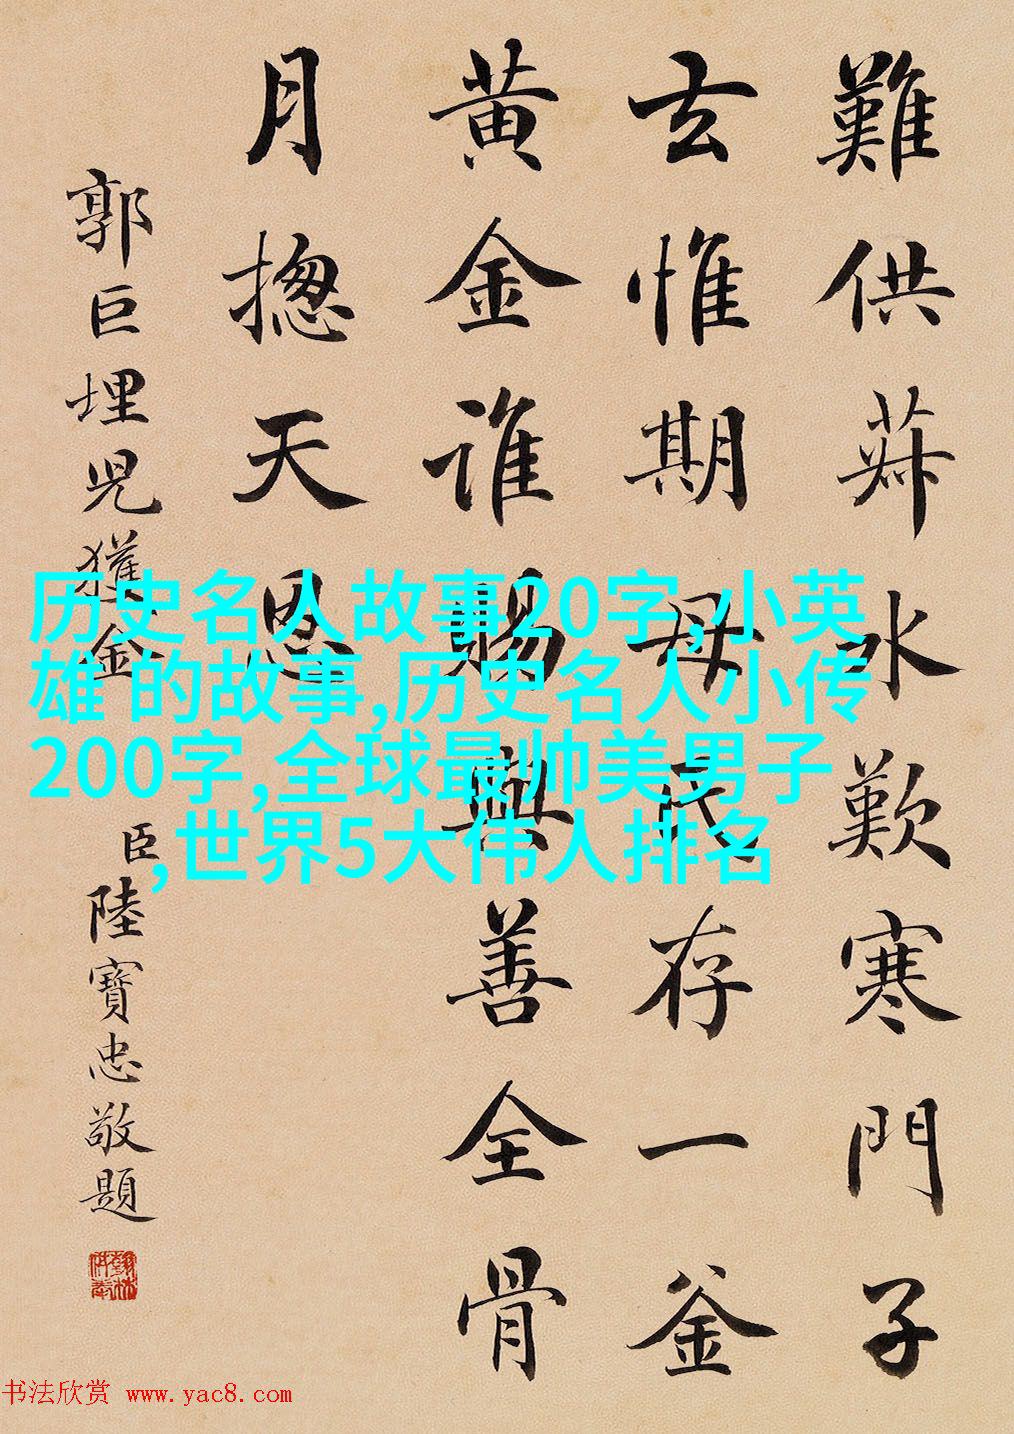 難供菽水歎寒門子
去惟期母氏存一釜
黃金誰賜與善全骨
月摠天恩
郭巨埋兒獲金
臣陸寶忠敬題
翰林供奉
历史名人故事20字,小英
雄 的故事,历史名人小传
200字,全球最帅美男子
,世界5大伟人排名
书法欣赏 www.yac8.com